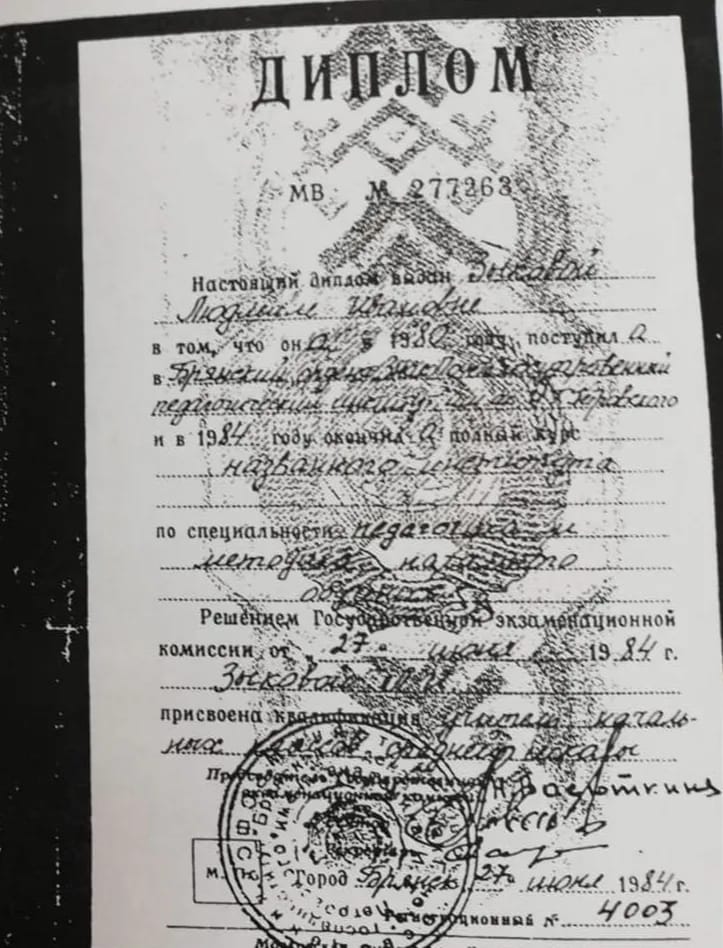 ДИПЛОМ
МВ № 277263
Настоящий диплом выдан Зыковой
Людмиле Ивановне
в том, что она в 1980 году поступила
в Брянский ордена Знак Почёта государственный
педагогический институт им. ак. И.Г. Петровского
и в 1984 году окончила полный курс
названного института
по специальности педагогика и
методика начального
обучения
Решением Государственной экзаменационной
комиссии от 27 июня 1984 г.
Зыковой Л.И.
присвоена квалификация учителя началь-
ных классов средней школы
Председатель Государственной
экзаменационной комиссии
Ректор
Секретарь
М.
Город Брянск 27 июня 1984 г.
Регистрационный № 4003